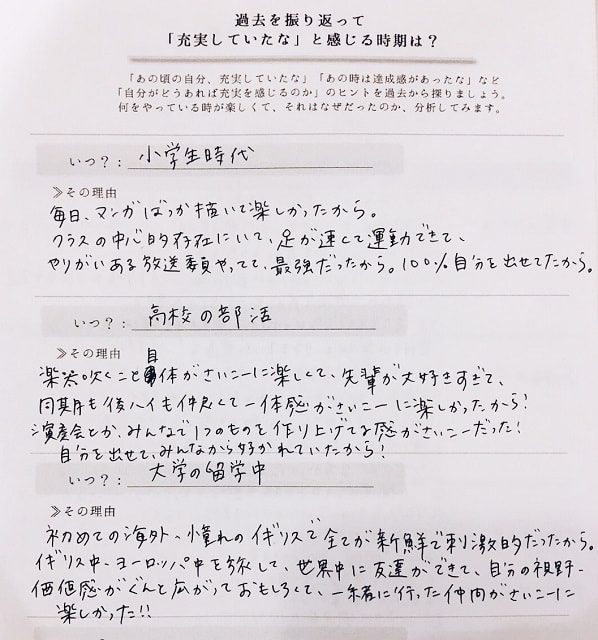 過去を振り返って
「充実していたな」と感じる時期は？
「あの頃の自分、充実していたな」「あの時は達成感があったな」など
「自分がどうあれば充実を感じるのか」のヒントを過去から探りましょう。
何をやっている時が楽しくて、それはなぜだったのか、分析してみます。
いつ？：小学生時代
≫その理由
毎日、マンガばっか描いて楽しかったから。
クラスの中心的存在にいて、足が速くて運動できて、
やりがいある放送委員やってて、最強だったから。100%自分を出せてたから。
いつ？：高校の部活
≫その理由
楽器吹くこと自体がさいこーに楽しくて、先輩が大好きすぎて、
同期も後ハイも仲良くて一体感がさいこーに楽しかったから！
演奏会とか、みんなで1つのものを作り上げてる感がさいこーだった！
自分を出せて、みんなから好かれていたから！
いつ？：大学の留学中
≫その理由
初めての海外、憧れのイギリスで全てが新鮮で刺激的だったから。
イギリス中、ヨーロッパ中を旅して、世界中に友達ができて、自分の視野、
価値感がぐんと広がっておもしろくて、一緒に行った仲間がさいこーに
楽しかった!!